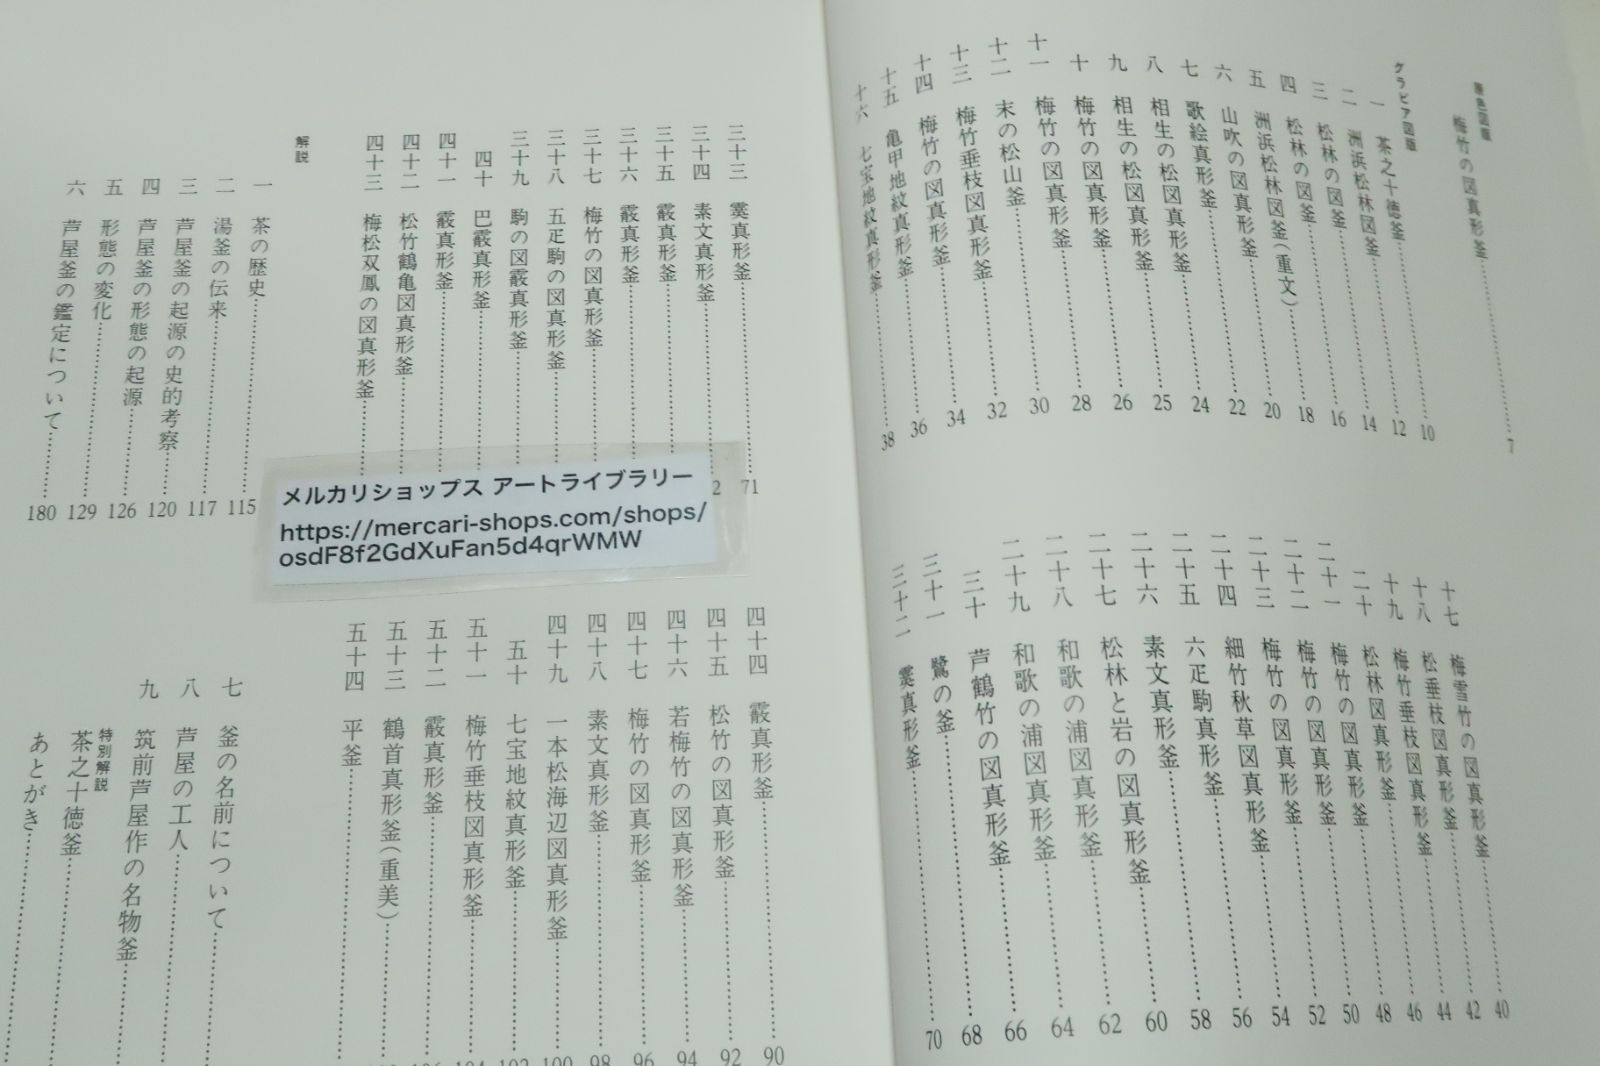 原色図版
梅竹の図真形釜……7
グラビア図版
一 茶之十徳釜……10
二 洲浜松林図釜……12
三 松林の図釜……14
四 松林の図釜……16
五 洲浜松林図釜(重文)……18
六 山吹の図真形釜……20
七 歌絵真形釜……22
八 相生の松図真形釜……24
九 相生の松図真形釜……25
十 梅竹の図真形釜……26
十一 梅竹の図真形釜……28
十二 末の松山釜……30
十三 梅竹垂枝図真形釜……32
十四 梅竹の図真形釜……34
十五 亀甲地紋真形釜……36
十六 七宝地紋真形釜……38
十七 梅雪竹の図真形釜……40
十八 松垂枝図真形釜……42
十九 梅竹垂枝図真形釜……44
二十 松林図真形釜……46
二十一 梅竹の図真形釜……48
二十二 梅竹の図真形釜……50
二十三 梅竹の図真形釜……52
二十四 細竹秋草図真形釜……54
二十五 六疋駒真形釜……56
二十六 素文真形釜……58
二十七 松林と岩の図真形釜……60
二十八 和歌の浦図真形釜……62
二十九 和歌の浦図真形釜……64
三十 芦鶴竹の図真形釜……66
三十一 鷺の釜……68
三十二 霙真形釜……70
三十三 霙真形釜……71
三十四 素文真形釜……2
三十五 霰真形釜……
三十六 霰真形釜……
三十七 梅竹の図真形釜……
三十八 五疋駒の図真形釜……
三十九 駒の図霰真形釜……
四十 巴霰真形釜……
四十一 霰真形釜……
四十二 松竹鶴亀図真形釜……
四十三 梅松双鳳の図真形釜……
四十四 霰真形釜……90
四十五 松竹の図真形釜……92
四十六 若梅竹の図真形釜……94
四十七 梅竹の図真形釜……96
四十八 素文真形釜……98
四十九 一本松海辺図真形釜……100
五十 七宝地紋真形釜……102
五十一 梅竹垂枝図真形釜……104
五十二 霰真形釜……106
五十三 鶴首真形釜(重美)……
五十四 平釜……
解説
一 茶の歴史……115
二 湯釜の伝来……117
三 芦屋釜の起源の史的考察……120
四 芦屋釜の形態の起源……126
五 形態の変化……129
六 芦屋釜の鑑定について……180
七 釜の名前について……
八 芦屋の工人……
九 筑前芦屋作の名物釜……
特別解説
茶之十徳釜……
あとがき……
メルカリショップス アートライブラリー
https://mercari-shops.com/shops/
osdF8f2GdXuFan5d4qrWMW